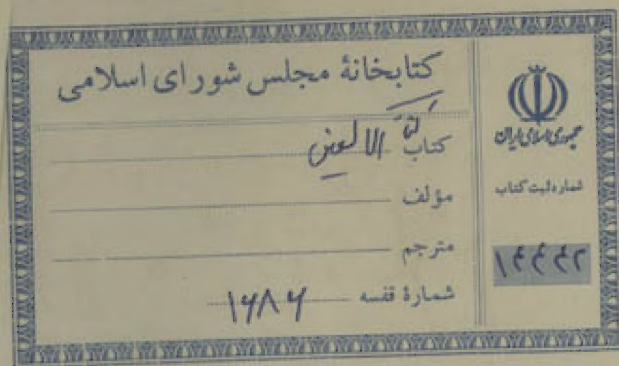 کتابخانهٔ مجلس شورای اسلامی
کتاب
مؤلف
مترجم
شمارهٔ قفسه ۱۶۸۶
جمهوری اسلامی ایران
شماره ثبت کتاب
۱۴۴۴۲